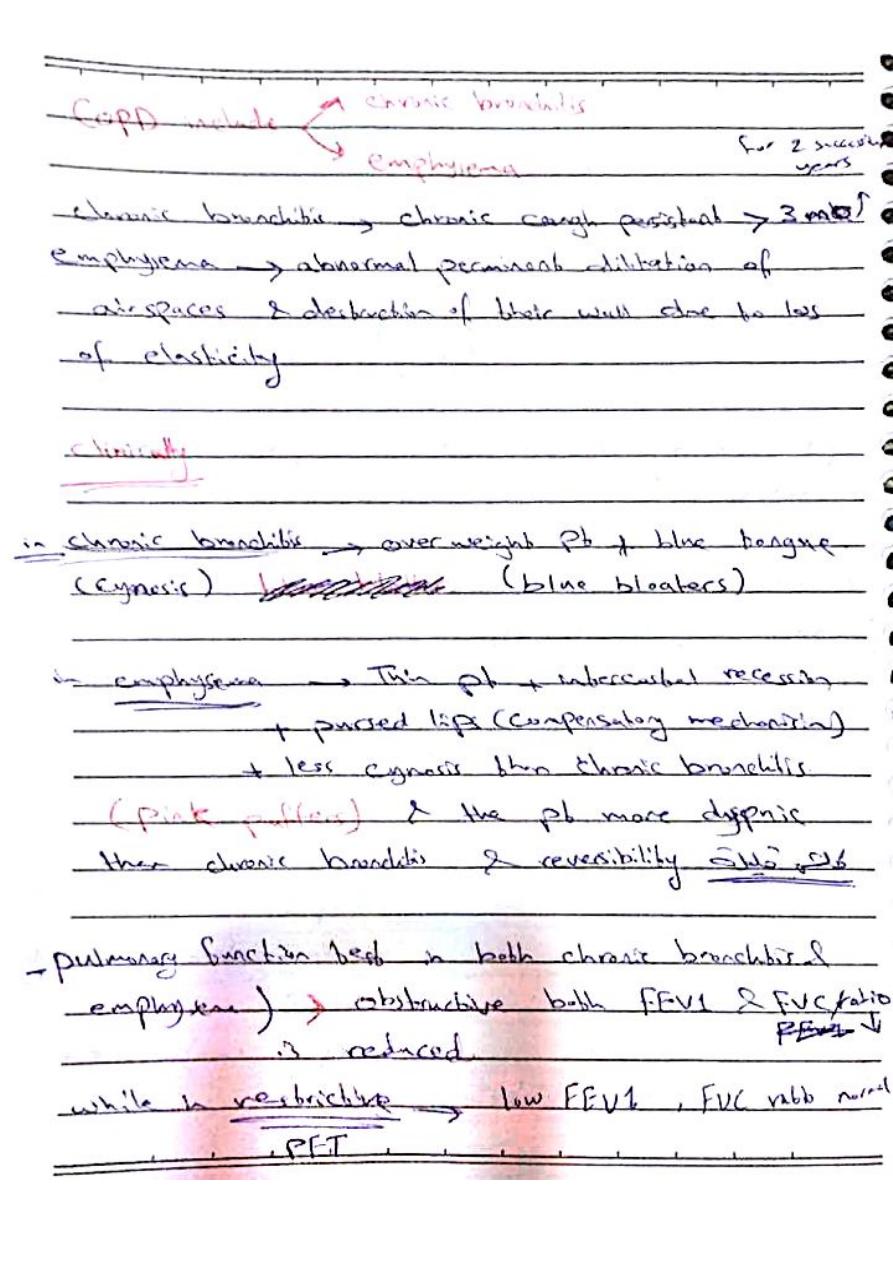 COPD include
chronic bronchitis
emphysema
for 2 successive years
chronic bronchitis → chronic cough persistant > 3 mo
emphysema → abnormal perminent dilitation of
airspaces & destruction of their wall due to loss
of elasticity
clinically
in chronic bronchitis → over weight pt + blue tongue
(cynosis) (blue bloaters)
in emphysema → Thin pt + intercostal recession
+ pursed lips (compensatory mechanism)
+ less cynosis then chronic bronchitis
(pink puffers) & the pt more dyspnic
then chronic bronchitis & reversibility
- pulmonary function test in both chronic bronchitis &
emphysema) > obstructive both FEV1 & FVC/ratio ↓
is reduced
while in restrictive → low FEV1, FVC ratio normal
PFT